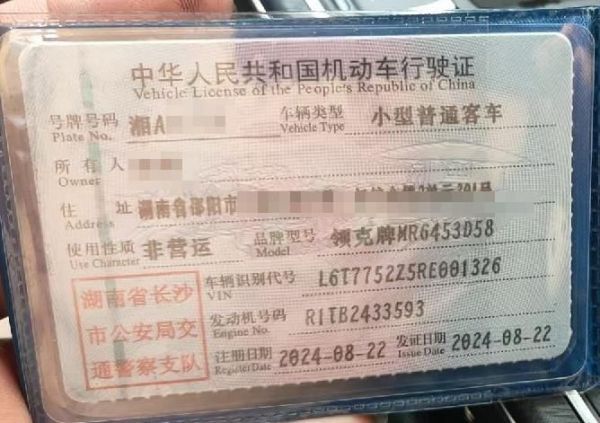 中华人民共和国机动车行驶证
Vehicle License of the People's Republic of China
号牌号码 湘A 车辆类型 小型普通客车
Plate No. Vehicle Type
所有人
Owner
住址 湖南省邵阳市
Address
使用性质 非营运 品牌型号 领克牌MR6453D58
Use Character Model
湖南省长沙
市公安局交
通警察支队
车辆识别代号 L6T7752Z5RE001326
VIN
发动机号码 R1TB2433593
Engine No.
注册日期 2024-08-22 发证日期 2024-08-22
Register Date Issue Date